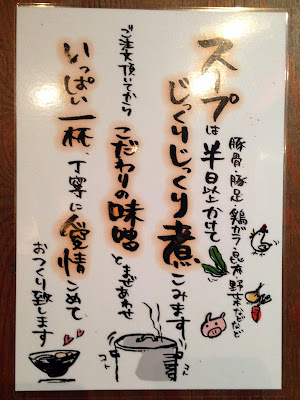 スープは半日以上かけて
豚骨・豚足・鶏ガラ・昆布・野菜などなど
じっくりじっくり煮こみます
ご注文頂いてから
こだわりの味噌とまぜあわせ
いっぱい一杯、丁寧に愛情こめて
おつくり致します
コト
コト